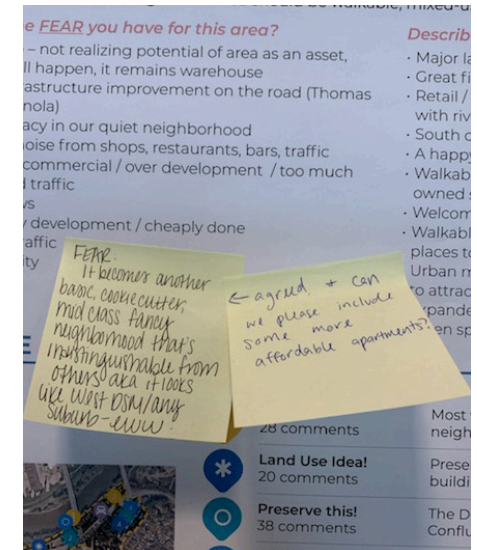 be walkable, mixed-u
e FEAR you have for this area?
– not realizing potential of area as an asset,
ll happen, it remains warehouse
astructure improvement on the road (Thomas
nola)
acy in our quiet neighborhood
oise from shops, restaurants, bars, traffic
commercial / over development / too much
d traffic
vs
/ development / cheaply done
affic
ity
Describ
• Major la
• Great fi
• Retail /
with riv
• South c
• A happy
• Walkab
owned s
• Welcom
• Walkabl
places to
Urban m
to attrac
xpande
en sp
FEAR:
It becomes another
basic, cookie cutter,
mid class fancy
neighborhood that's
indistinguishable from
others aka it looks
like West DSM/any
Suburb-eww!
← agreed + can
we please include
some more
affordable apartments?
E
28 comments
Most
neigh
Land Use Idea!
20 comments
Prese
buildi
Preserve this!
38 comments
The D
Conflu